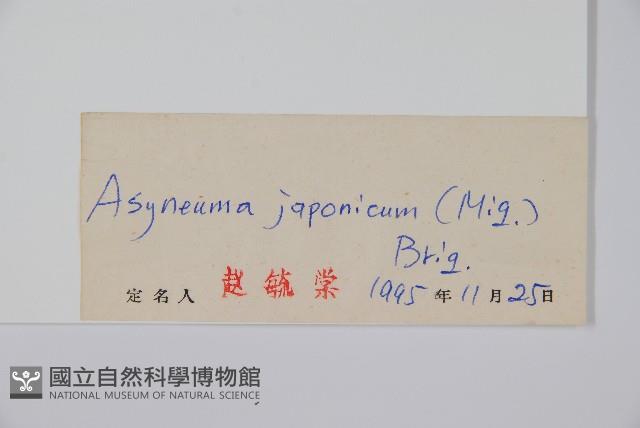 Asyneuma japonicum (Miq.)
Briq.
定名人 赵毓棠 1995年11月25日
國立自然科學博物館
NATIONAL MUSEUM OF NATURAL SCIENCE